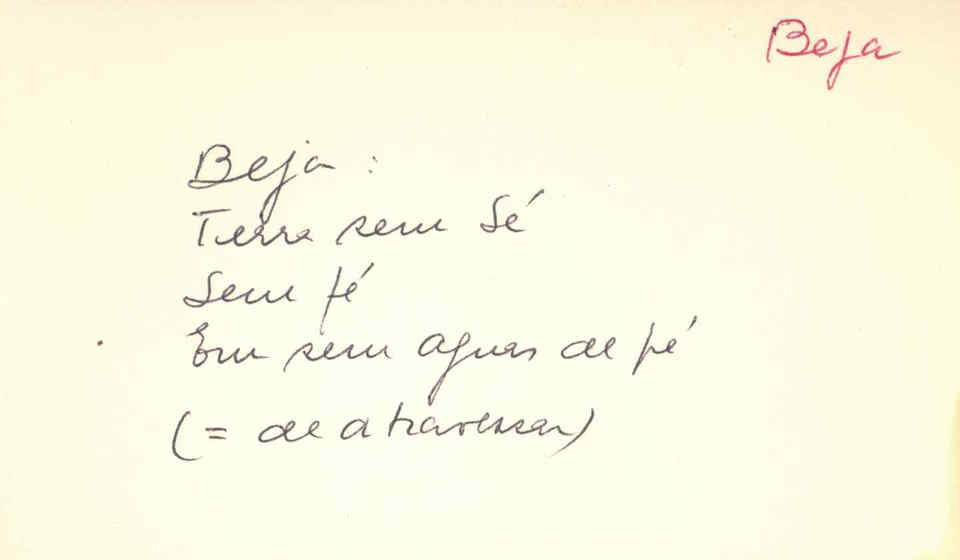 Beja
Beja :
Terra sem Sé
Sem fé
Em sem aguas de pé
(= de atravessar)